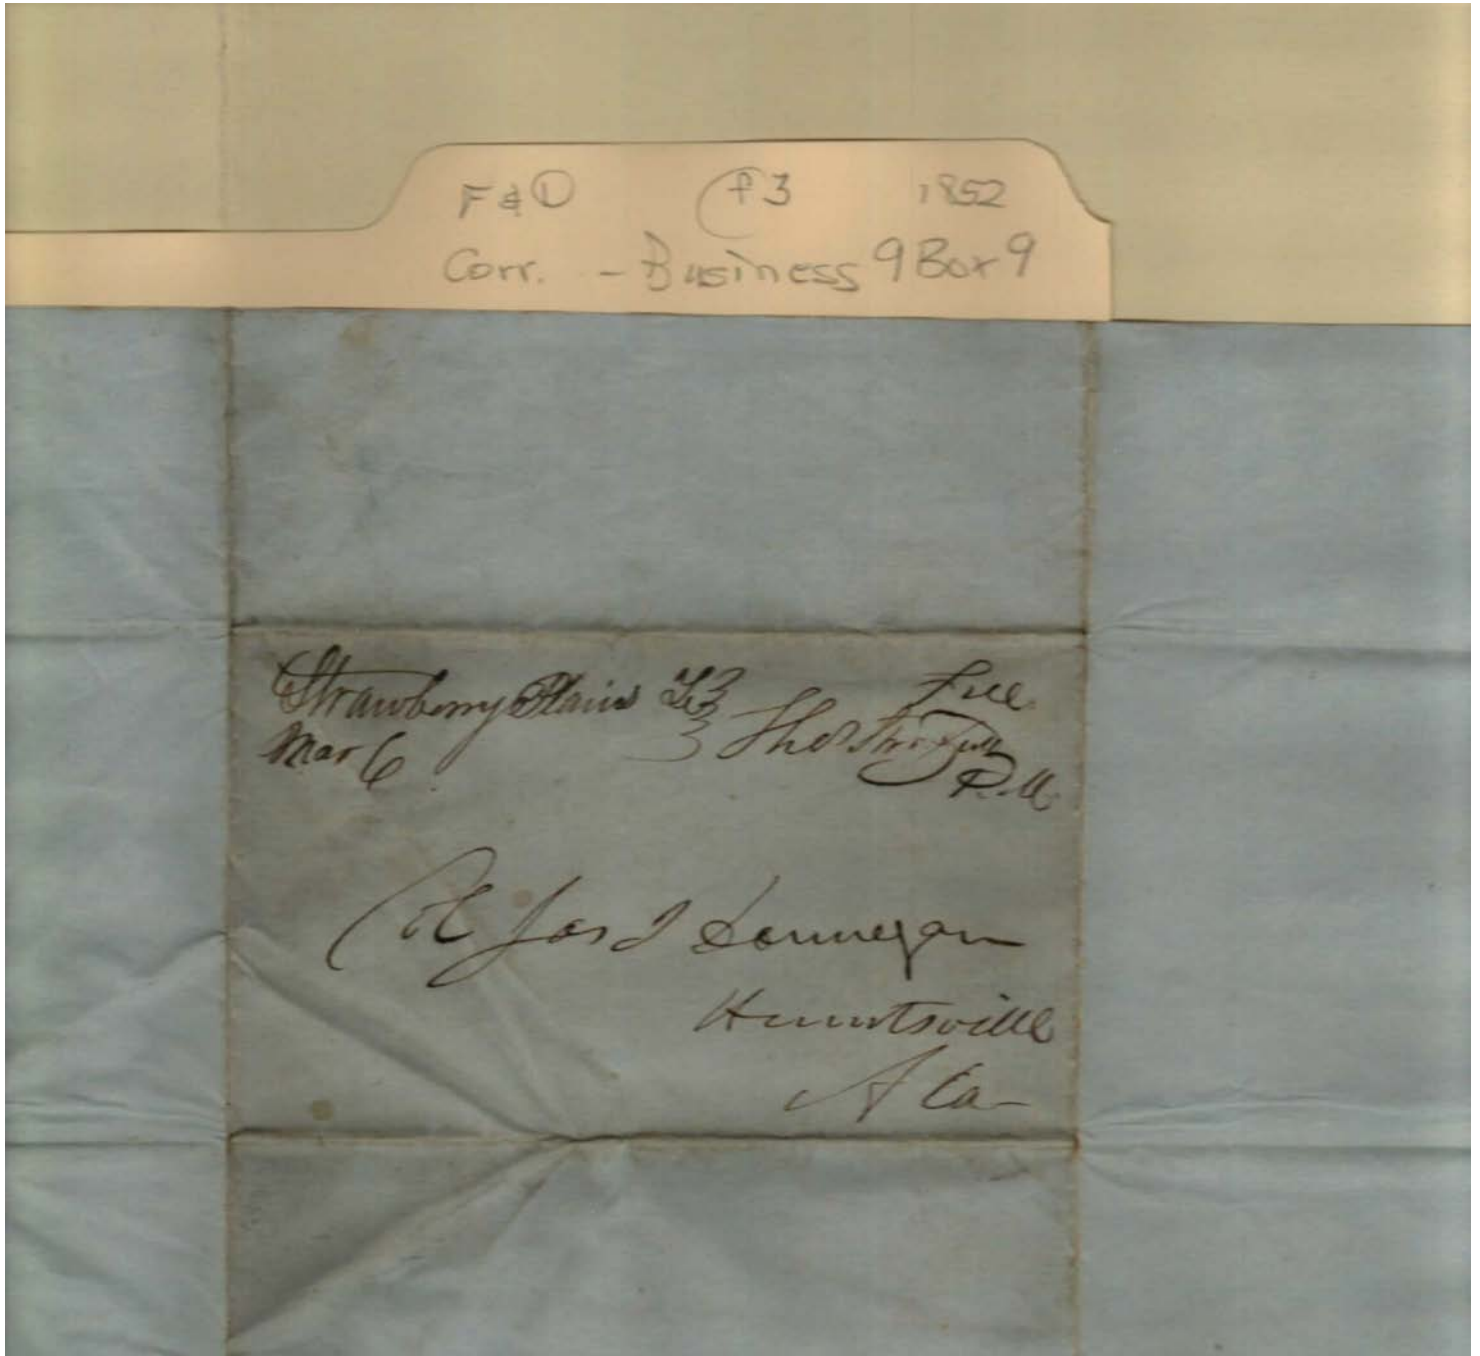 F & D f3 1852
Corr. - Business 9 Box 9
Strawberry Plains Te
Mar 6
Free
Thos
P.M.
Col Jas J Donnegan
Huntsville
Ala